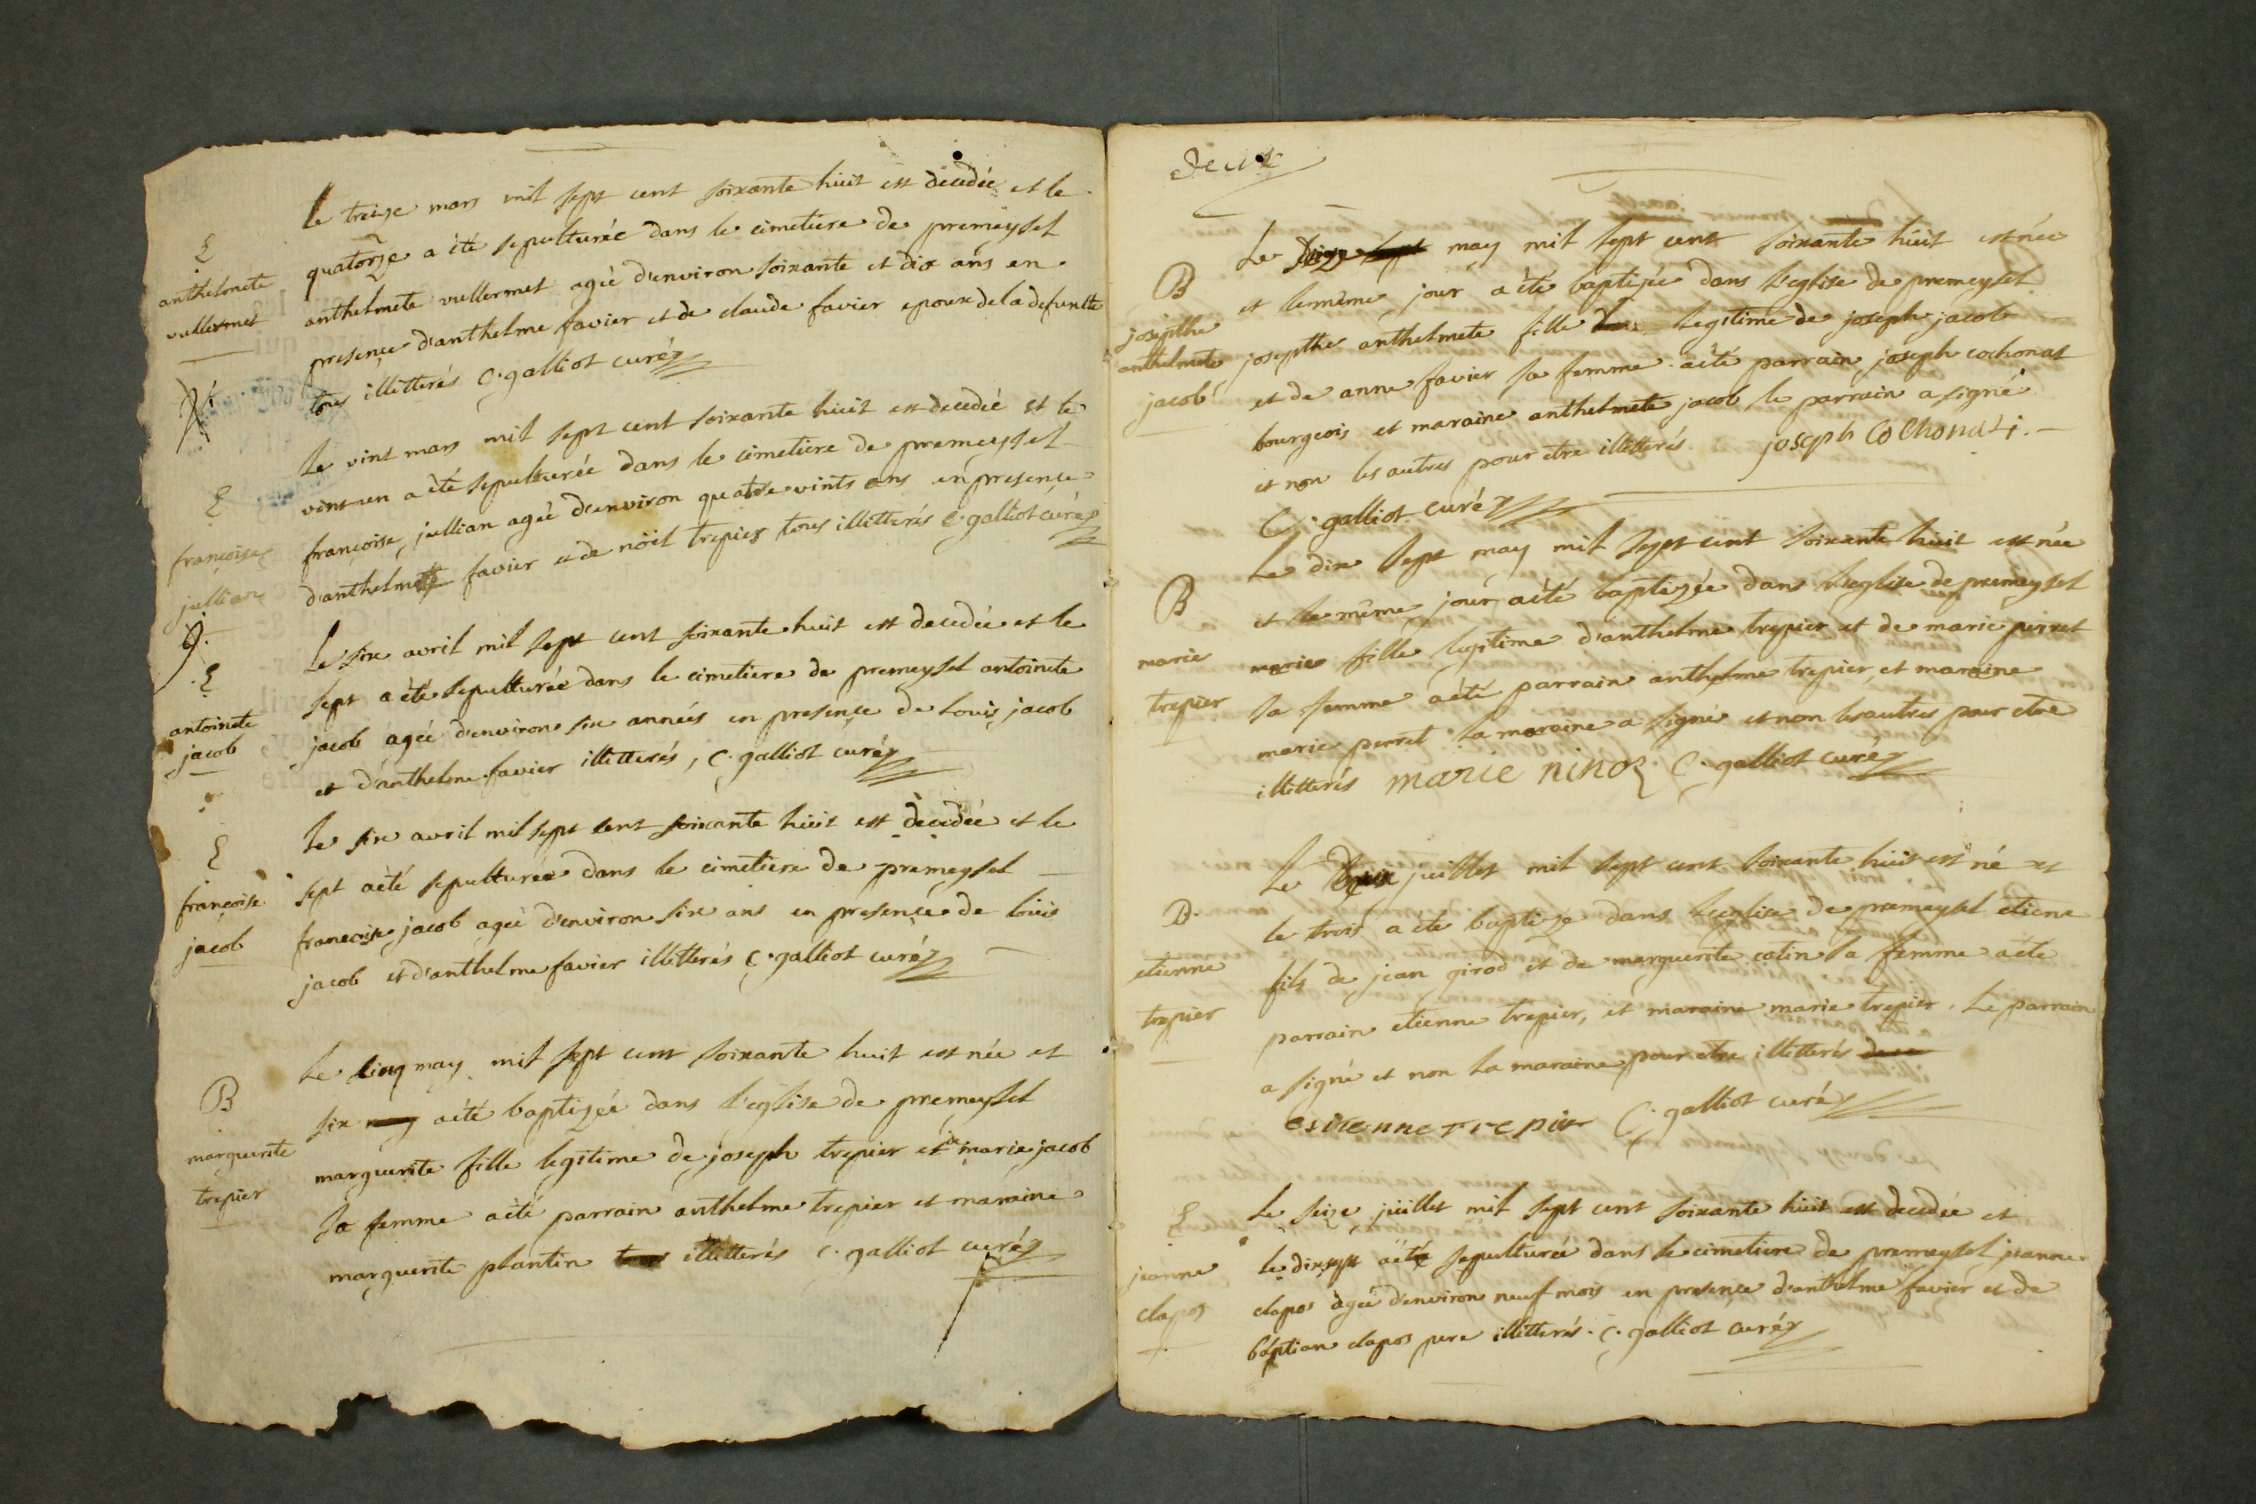 Le treize mars mil sept cent soixante huit est decedée et le
quatorze a été sepulturée dans le cimetiere de premeysel
anthelmete vullermet agée d'environ soixante et dix ans en
presence d'anthelme favier et de claude favier epoux de la defunte
tous illitterés C. galliot curé
E
anthelmete
vullermet
Le vint mars mil sept cent soixante huit est decedée et le
vint un a été sepulturée dans le cimetiere de premeysel
françoise jullian agée d'environ quatre vints ans en presence
d'anthelme favier et de nöel trepier tous illitterés C. galliot curé
E
françoise
jullian
9.
Le six avril mil sept cent soixante huit est decedée et le
sept a été sepulturée dans le cimetiere de premeysel antoinete
jacob agée d'environ six années en presence de Louis jacob
et d'anthelme favier illitterés, C. galliot curé
E
antoinete
jacob
Le six avril mil sept cent soixante huit est decedée et le
sept a été sepulturée dans le cimetiere de premeysel
francoise jacob agée d'environ six ans en presence de louis
jacob et d'anthelme favier illitterés C. galliot curé
E
françoise
jacob
Le cinq may mil sept cent soixante huit est née et
six may a été baptizée dans l'eglise de premeysel
marguerite fille legitime de joseph trepier et de marie jacob
sa femme a été parrain anthelme trepier et maraine
marguerite plantin tous illitterés C. galliot curé
B
marguerite
trepier
Deux
Le may mil sept cent soixante huit est née
et le même jour a été baptizée dans l'eglise de premeysel
josepthe anthelmete fille legitime de joseph jacob
et de anne favier sa femme a été parrain joseph cochonat
bourgeois et maraine anthelmete jacob le parrain a signé
et non les autres pour etre illitterés joseph Cochonat
C. galliot curé
B
josepthe
anthelmete
jacob
Le dix sept may mil sept cent soixante huit est née
et le même jour a été baptizée dans l'eglise de premeysel
marie fille legitime d'anthelme trepier et de marie perret
sa femme a été parrain anthelme trepier, et maraine
marie perret la maraine a signé et non les autres pour etre
illitterés marie ninoz C. galliot curé
B
marie
trepier
Le juillet mil sept cent soixante huit est né et
le trois a été baptize dans l'eglise de premeysel etiene
fils de jean girod et de marguerite colin sa femme a été
parrain etienne trepier, et maraine marie trepier. Le parrain
a signé et non la maraine pour etre illitterés
estienne trepier C. galliot curé
B.
etienne
trepier
Le seize juillet mil sept cent soixante huit est decedée et
le dix sept a été sepulturée dans le cimetiere de premeysel jeanne
clapos agée d'environ neuf mois en presence d'anthelme favier et de
baptian clapos pere illitterés. C. galliot curé
E
jeanne
clapos